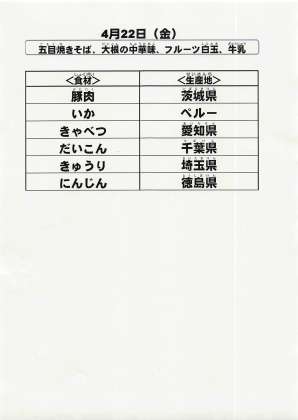 4月22日（金）
五目焼きそば、大根の中華味、フルーツ白玉、牛乳
＜食材＞ ＜生産地＞
豚肉 茨城県
いか ペルー
きゃべつ 愛知県
だいこん 千葉県
きゅうり 埼玉県
にんじん 徳島県